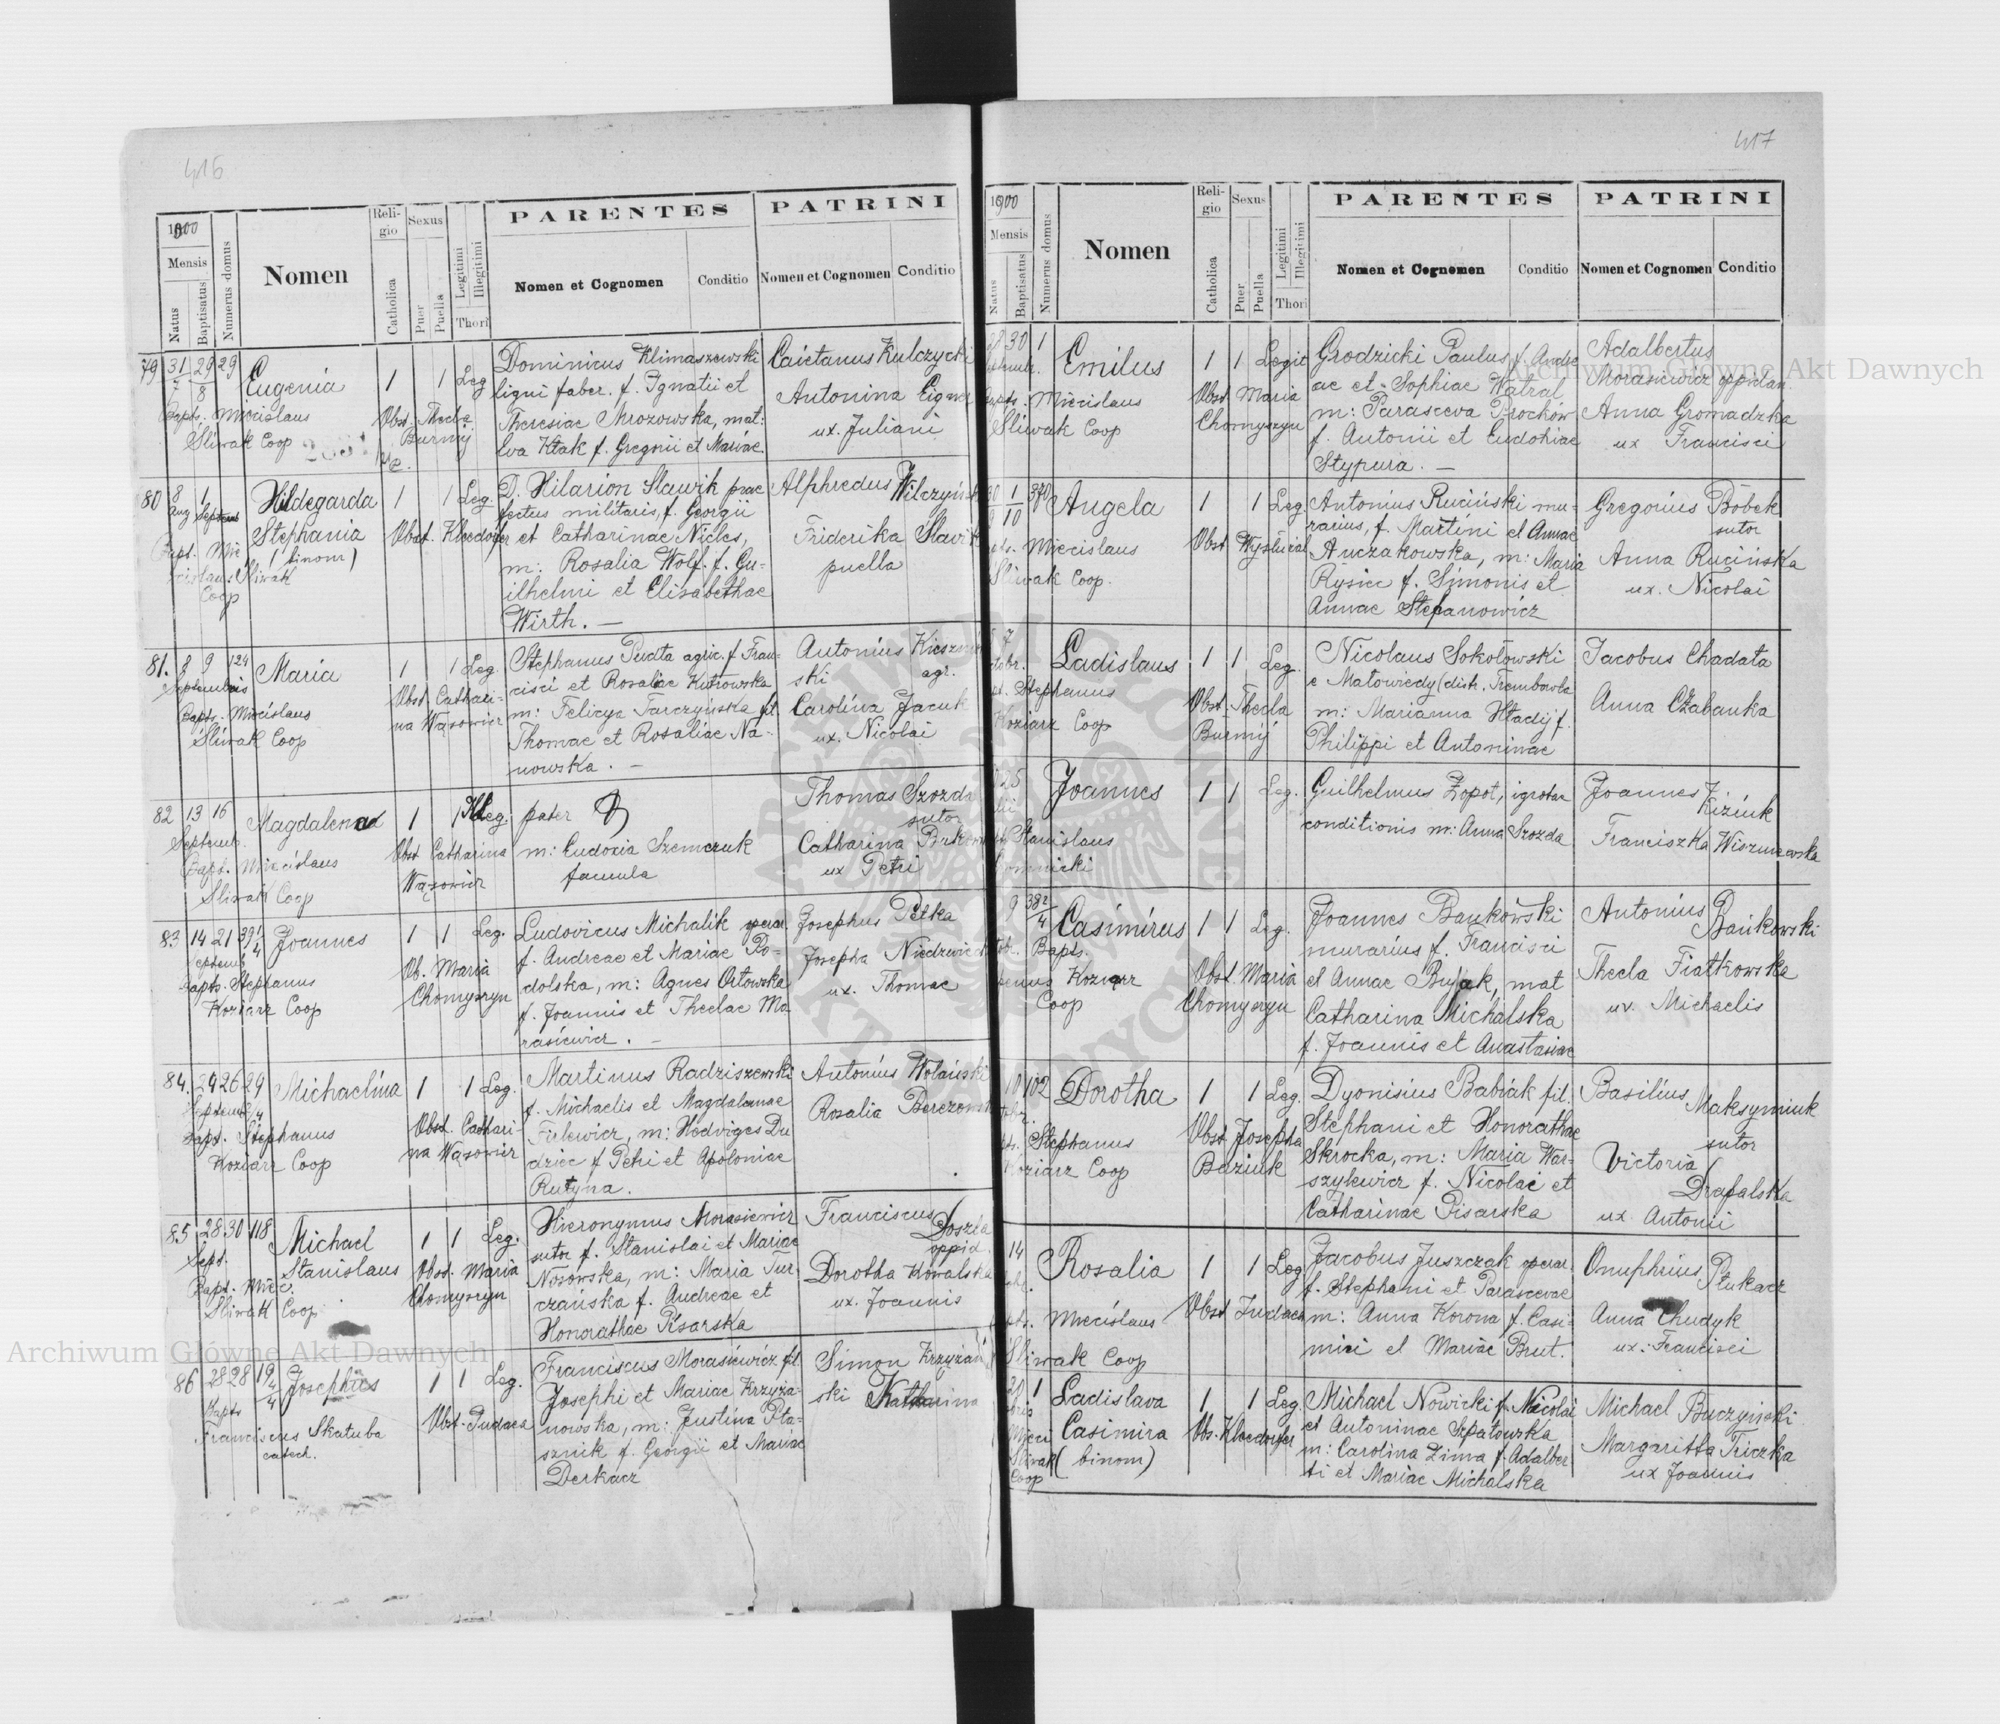 416
1900
Mensis
Natus
Baptisatus
Numerus domus
Nomen
Religio
Catholica
Sexus
Puer
Puella
Legitimi
Illegitimi
Thori
PARENTES
Nomen et Cognomen
Conditio
PATRINI
Nomen et Cognomen
Conditio
79 31/7 29/8 29
Eugenia
1 1 Leg
Bapt. Miecislaus
Śliwak Coop
Obst. Thecla
Burmij
Dominicus Klimaszewski
ligni faber. f. Ignatii et
Theresiae Mrozowska, mat:
Eva Kłak f. Gregorii et Mariae.
Caietanus Kulczycki
Antonina Eigner
ux. Juliani
80 8 1
Aug Septemb
Hildegarda
Stephania
(binom)
1 1 Leg.
Bapt. Mie
cislaus Śliwak
Coop
Obst. Kleedorfer
D. Hilarion Slawik prae
fectus militaris, f. Georgii
et Catharinae Nicles,
m: Rosalia Wolf. f. Gu-
ilhelmi et Elisabethae
Wirth. —
Alphredus Wilczyńsk
Friderika Slavik
puella
81. 8 9 124
Septembris
Maria
1 1 Leg.
Bapt. Miecislaus
Śliwak Coop
Obst. Cathari-
na Wąsowicz
Stephanus Pudta agric. f. Fran-
cisci et Rosaliae Kutrowska
m: Felicya Tarczyńska fil.
Thomae et Rosaliae Na-
nowska. —
Antonius
ski agr.
Carolina Jacuk
ux. Nicolai
82 13 16
Septemb.
Magdalena
1 1 Leg.
Bapt. Miecislaus
Śliwak Coop
Obst Catharina
Wąsowicz
pater
m: Eudoxia Szemczuk
famula
Thomas Szozda
sutor
Catharina
ux Petri
83 14 21 39 1/4
Septemb
Joannes
1 1 Leg.
Bapt. Stephanus
Koziarz Coop
Ob. Maria
Chomyszyn
Ludovicus Michalik operar.
f. Andreae et Mariae Po-
dolska, m: Agnes Orłowska
f. Joannis et Theclae Mo
rasiewicz. —
Josephus Petka
Josepha Niedzwiec
ux. Thomae
84. 24 26 29
Septemb /4
Michaelina
1 1 Leg.
Bapt. Stephanus
Koziarz Coop
Obst. Cathari
na Wąsowicz
Martinus Radziszewski
f. Michaelis et Magdalenae
Firlewicz, m: Hedviges Du
dziec f Petri et Apoloniae
Rutyna.
Antonius Wolański
Rosalia Berezows
85 28 30 118
Sept.
Michael
Stanislaus
1 1 Leg.
Bapt. Miec.
Śliwak Coop
Obst. Maria
Chomyszyn
Hieronymus Morasiewicz
sutor f. Stanislai et Mariae
Nosowska, m: Maria Tur
czańska f. Andreae et
Honorathae Pisarska
Franciscus Doszla
oppid.
Dorotha Kowalska
ux. Joannis
86 28 28 19 4/4
Josephus
1 1 Leg.
Bapt
Franciscus Skałuba
catech.
Obst. Judaea
Franciscus Morasiewicz fil.
Josephi et Mariae Krzyża-
nowska, m: Justina Pta-
sznik f. Georgii et Mariae
Derkacz
Simon Krzyżań
ski Katharina
417
1900
Mensis
Natus
Baptisatus
Numerus domus
Nomen
Religio
Catholica
Sexus
Puer
Puella
Legitimi
Illegitimi
Thori
PARENTES
Nomen et Cognomen
Conditio
PATRINI
Nomen et Cognomen
Conditio
28 30 1
Emilus
1 1 Legit
Miecislaus
Śliwak Coop
Obst Maria
Chomyszyn
Grodzicki Paulus f. Andre
ae et Sophiae Watral,
m: Parasceva Prockow
f. Antonii et Eudokiae
Stypura. —
Adalbertus
Morasiewicz oppidan.
Anna Gromadzka
ux Francisci
30 1 370
10
Angela
1 1 Leg.
Miecislaus
Śliwak Coop.
Obst.
Antonius Ruciński mu-
rarius, f. Martini et Annae
Anczakowska, m: Maria
Rysiec f. Simonis et
Annae Stefanowicz
Gregorius Bobek
sutor
Anna Rucińska
ux. Nicolai
7
Ladislaus
1 1 Leg.
Stephanus
Koziarz Coop
Obst. Thecla
Burmij
Nicolaus Sokołowski
e Małowiedy (distr. Trembowla
m: Marianna Hładij f.
Philippi et Antoninae
Jacobus Chadata
Anna Czabanka
25
Joannes
1 1 Leg.
Stanislaus
Guilhelmus Zopot, ignotae
conditionis m: Anna Szozda
Joannes Kiziuk
Franciszka Wiszniewska
9 382/4
Casimirus
1 1 Leg.
Bapt.
Koziarz
Coop
Obst. Maria
Chomyszyn
Joannes Bankowski
murarius f. Francisci
et Annae Bujak, mat
Catharina Michalska
f. Joannis et Anastasiae
Antonius Bańkowski
Thecla Fiałkowska
ux. Michaelis
10 102
Dorotha
1 1 Leg.
Stephanus
Koziarz Coop
Obst Josepha
Baziuk
Dyonisius Babiak fil.
Stephani et Honorathae
Skrocka, m: Maria War-
szylewicz f. Nicolai et
Catharinae Pisarska
Basilius Maksymiuk
sutor
Victoria Drafalska
ux. Antonii
14
Rosalia
1 1 Leg
Miecislaus
Śliwak Coop
Obst Judaea
Jacobus Juszczak operar.
f. Stephani et Parascevae
m: Anna Korona f. Casi-
miri et Mariae Brut.
Onuphrius Plukarz
Anna Chudyk
ux. Francisci
1
Ladislava
Casimira
(binom)
1 1 Leg
Śliwak
Coop
Ob. Kleedorfer
Michael Nowicki f. Nicolai
et Antoninae Szpatowska
m: Carolina Zima f. Adalber
ti et Mariae Michalska
Michael Buczyński
Margaritta Triczka
ux Joannis
Archiwum Główne Akt Dawnych
Archiwum Główne Akt Dawnych
ARCHIWUM GŁÓWNE AKT DAWNYCH